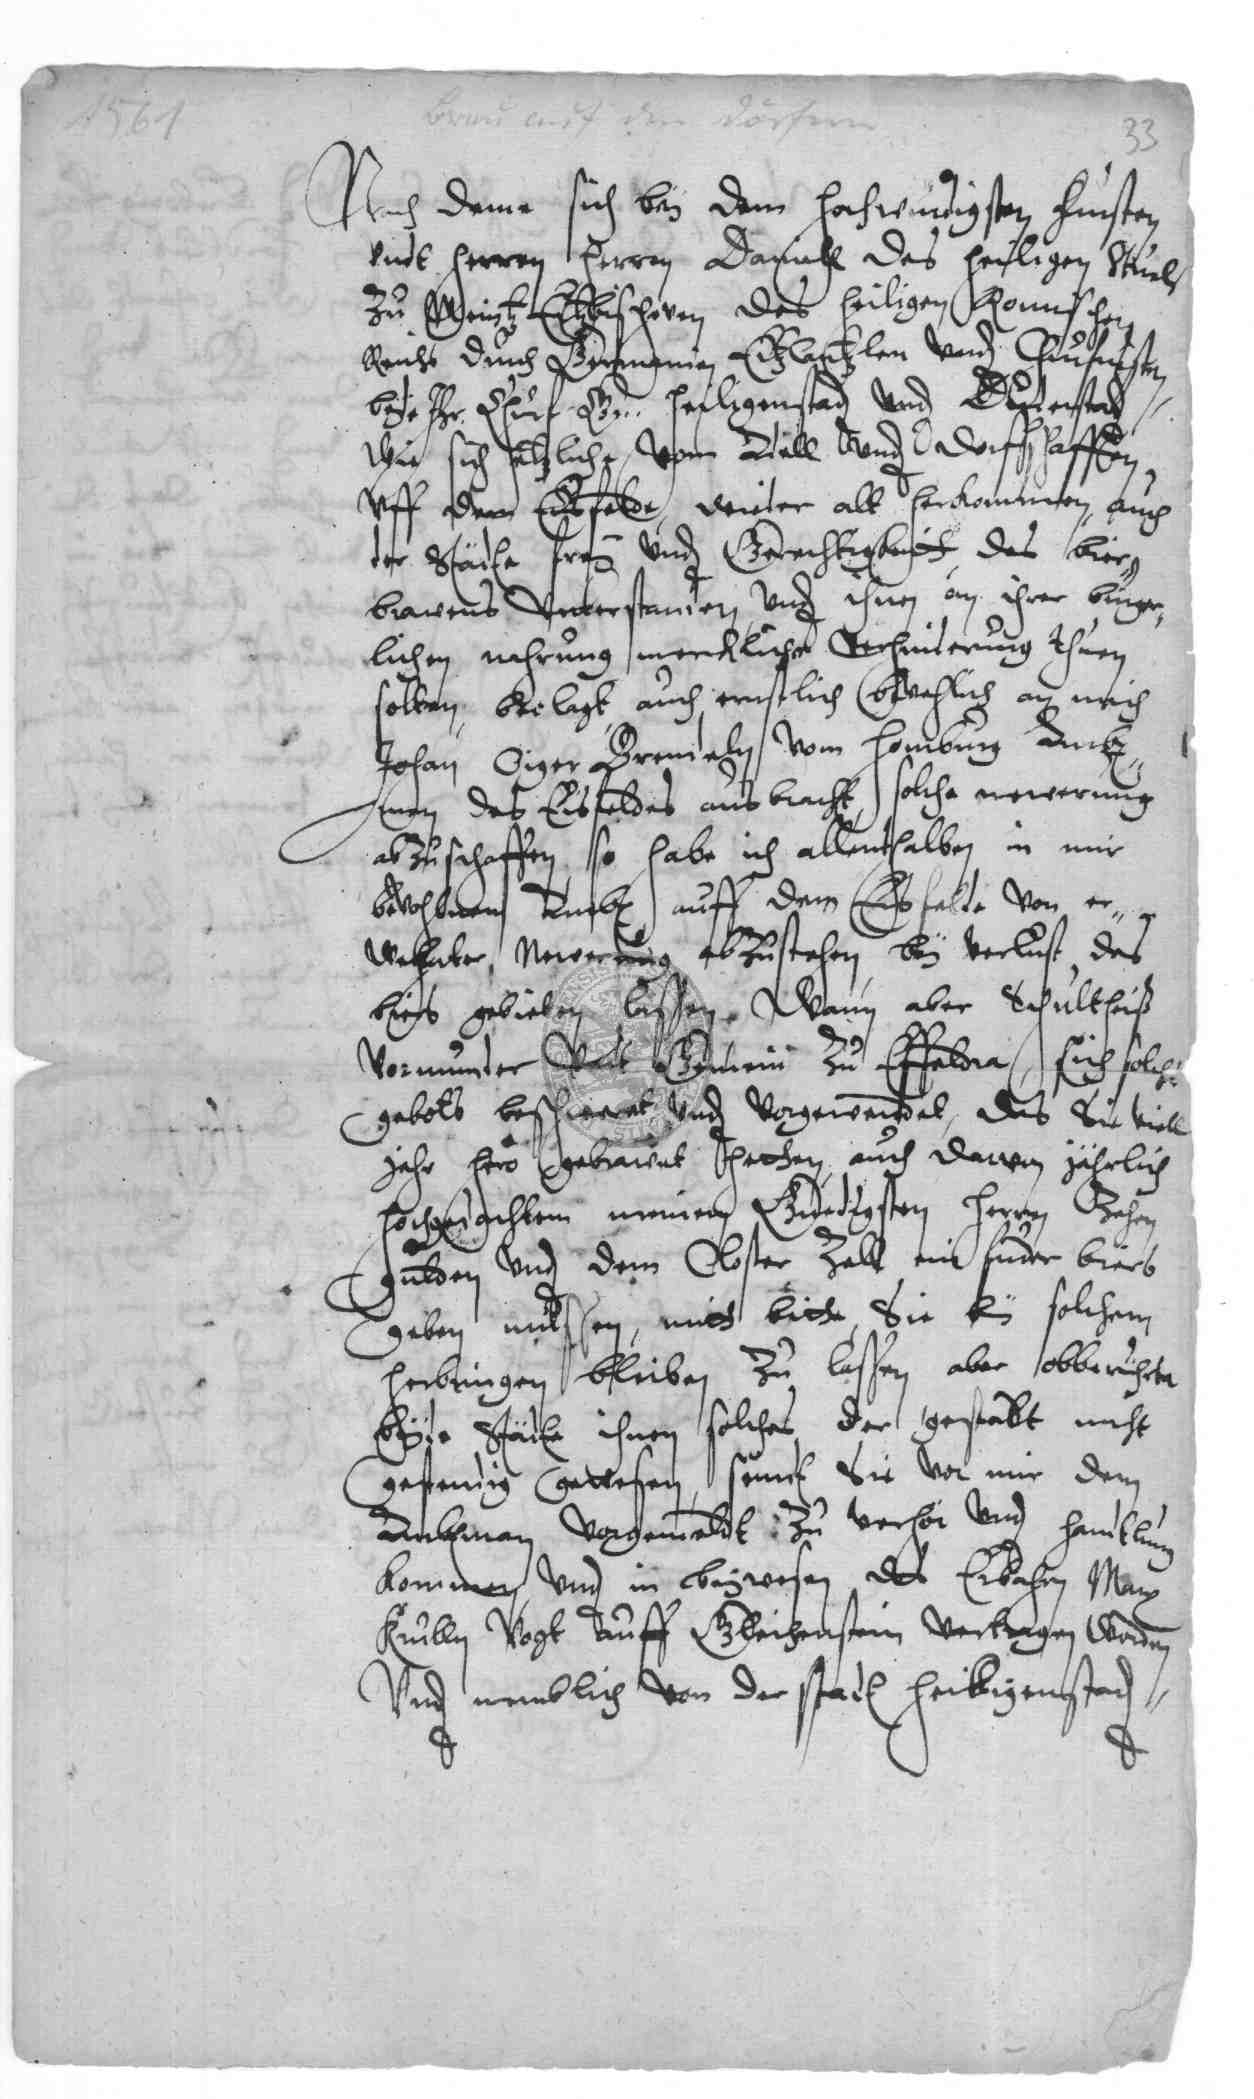 1561 Brau auf den Dörfern 33
Nach deme sich bey dem hochwurdigsten Fursten
undt Herren Herren Daniell des heiligen Stuels
zu Meintz Ertzbischoven des heiligen Romischen
Reichs durch Germanien Ertzcantzlern und Churfursten
beyde Ihr. Churf. Gn. Heiligenstad und Duderstad
Wie sich etzliche vom Adell und Dorffschafften
uff dem Eisfelde wieder alt herkommen auch
der Städte frey und Gerechtigkeitt des bier
brawens understanden und ihnen an ihrer burger
lichen nahrung merckliche verhinderung thuen
solten, beclagt auch ernstlich bevehlich an mich
Johan Oiger Brendeln vom Homburg Ambt
man des Eisfeldes ausbracht, solche newerung
abzuschaffen so habe ich allenthalben in mir
bevohlnem Ambt auff dem Eisfelde von er
welter Newerung abzustehen bey verlust des
biers gebieten lassen. Wann aber Schultheiß
Vormunder undt Gemein zu Effeldra sich solchs
gebots beschweret und vorgewendet, das Sie viell
jahr hero gebrawet hetten auch davon jährlich
hochgedachtem meinem Gnedigsten Herren Zehen
gulden und dem Closter Zell ein fuder biers
geben müssen, mitt bitte Sie bey solchem
herbringen bleiben zu lassen aber obberuhrte
beyde Städte ihnen solches der gestalt nicht
gestendig gewesen, seindt Sie vor mir dem
Ambtman vorgemelt zu verhör und handtlung
kommen und in beywesen des Erbahrn Marx
Krulln Vogt auff Gleichenstein vertragen worden
Und nemblich von der stadt Heilligenstad